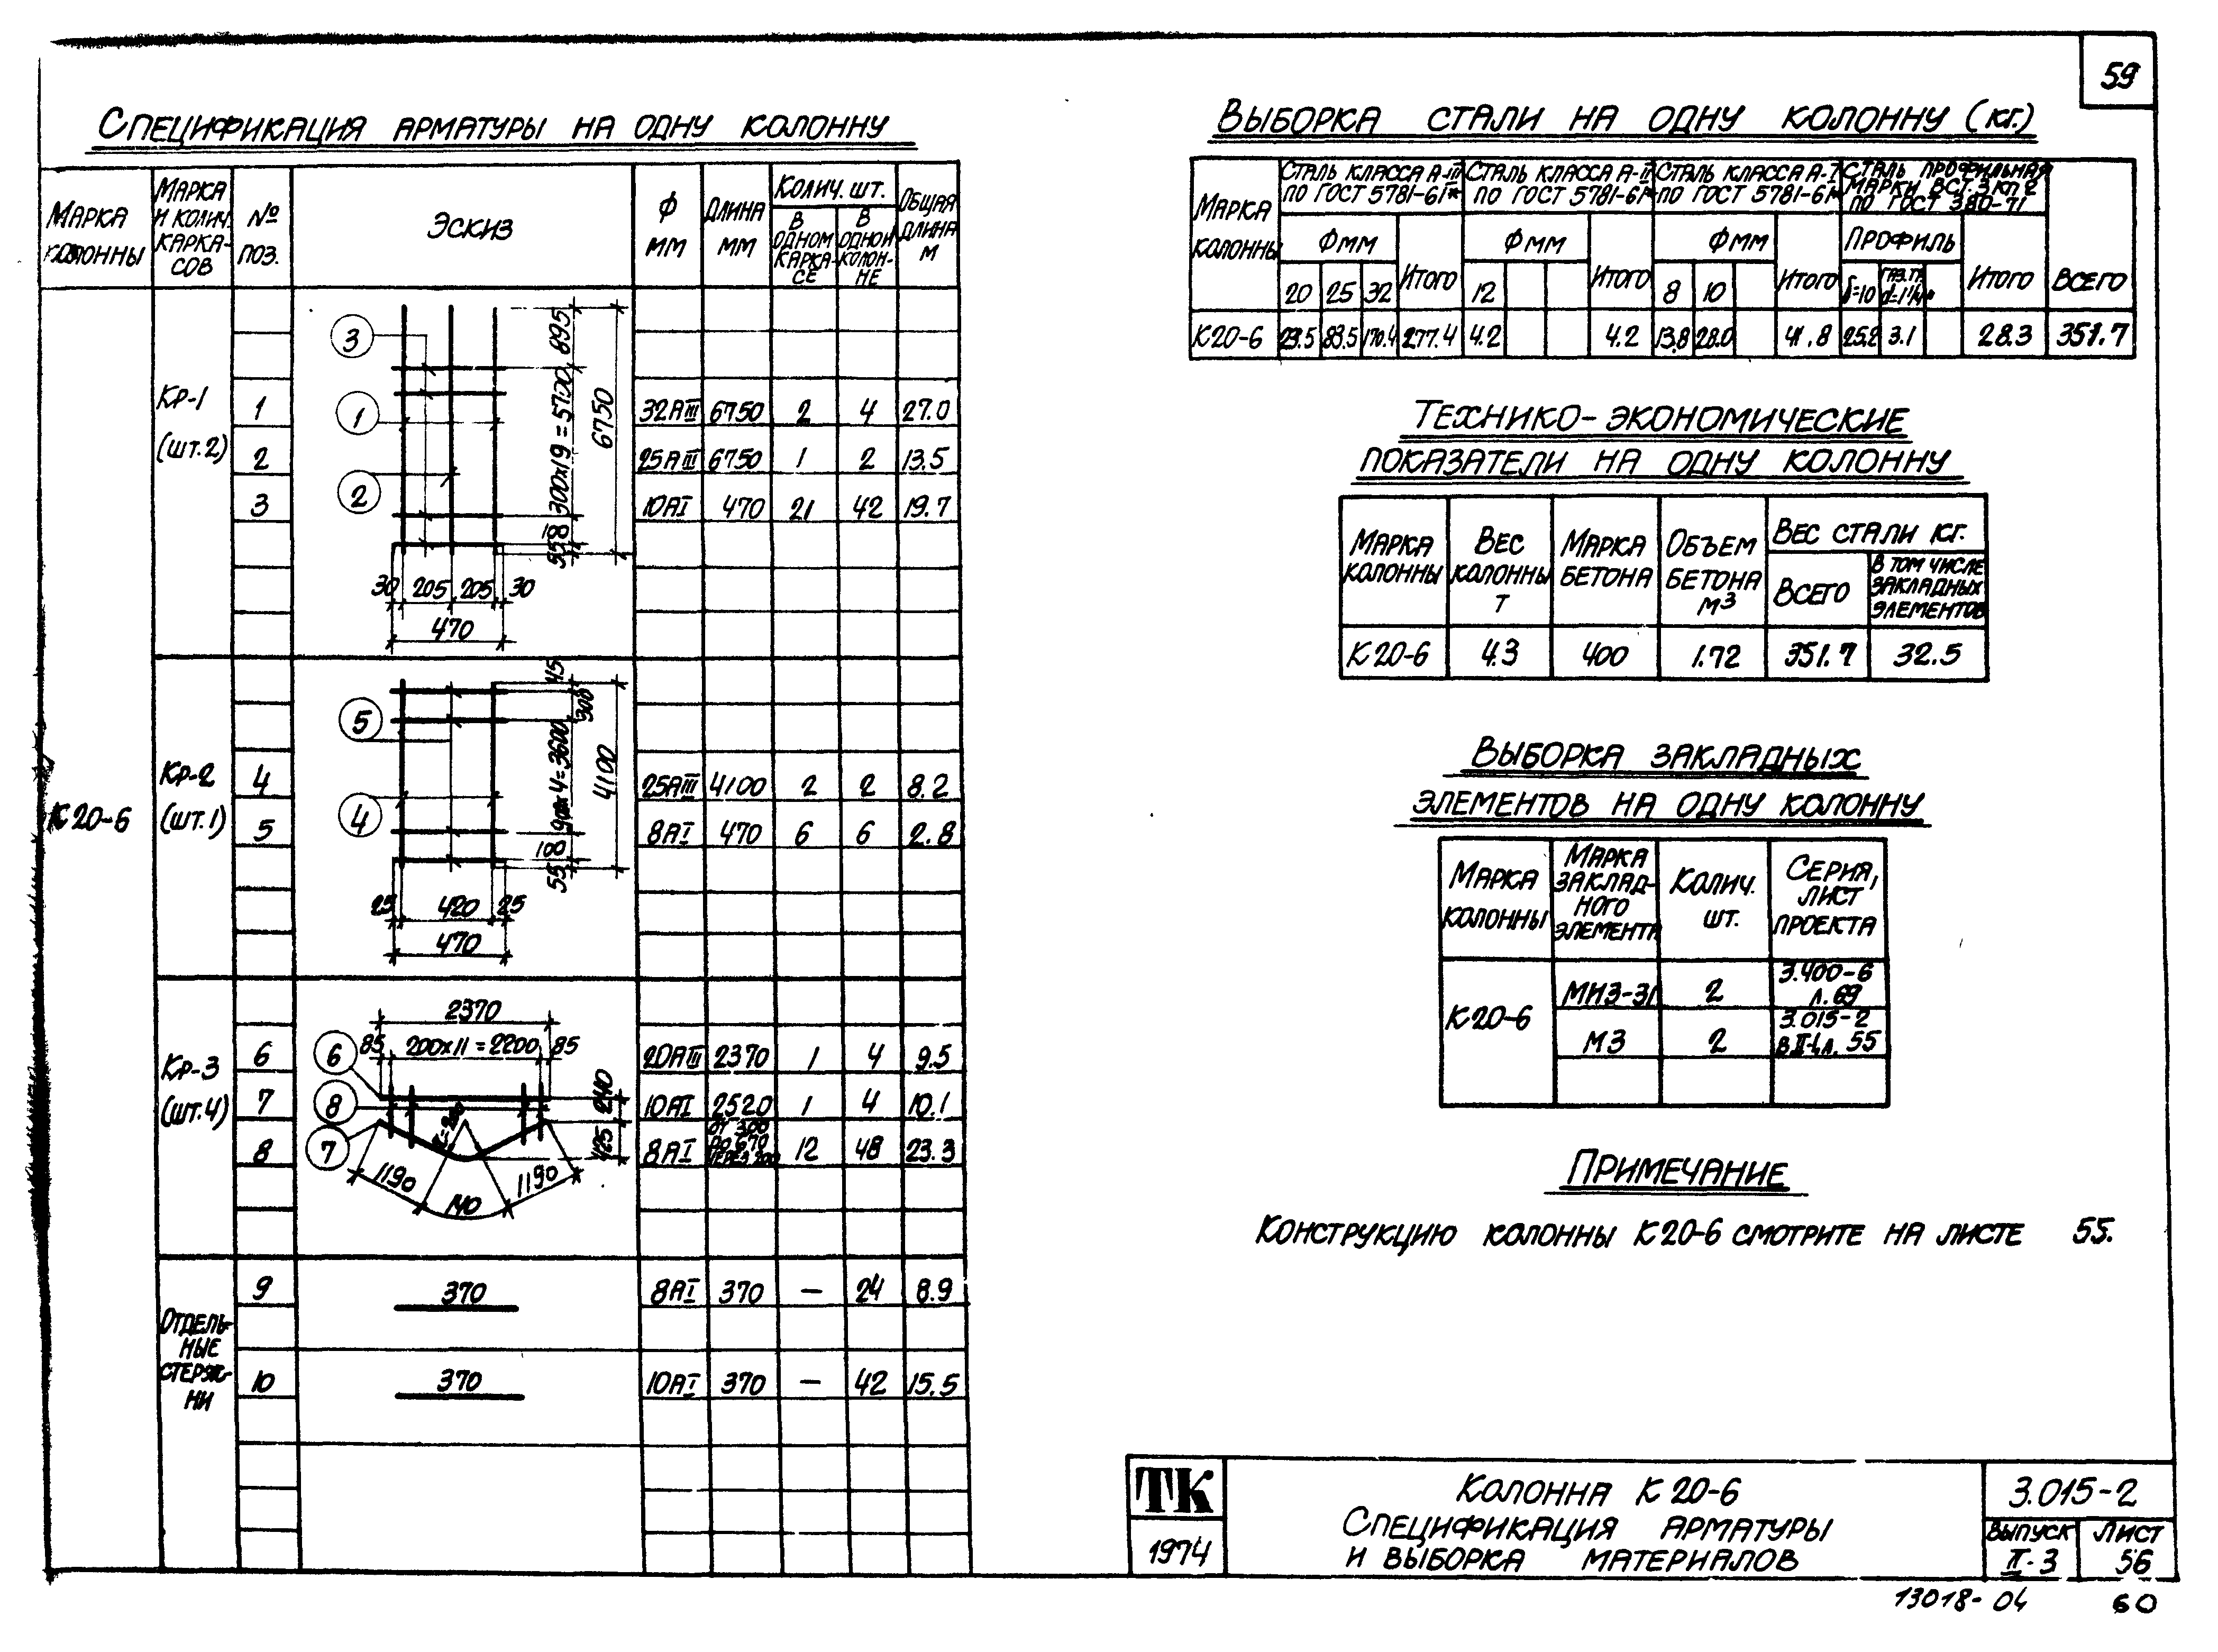 59
СПЕЦИФИКАЦИЯ АРМАТУРЫ НА ОДНУ КОЛОННУ
МАРКА КОЛОННЫ
МАРКА И КОЛИЧ. КАРКА-СОВ
№ ПОЗ.
ЭСКИЗ
Ф ММ
ДЛИНА ММ
КОЛИЧ. ШТ.
В ОДНОМ КАРКА-СЕ
В ОДНОЙ КОЛОН-НЕ
ОБЩАЯ ДЛИНА М
К20-6
КР-1
(ШТ.2)
1 32АIII 6750 2 4 27.0
2 25АIII 6750 1 2 13.5
3 10АI 470 21 42 19.7
3
1
2
895
300х19=5700
6750
55
30 205 205 30
470
КР-2
(ШТ.1)
4 25АIII 4100 2 2 8.2
5 8АI 470 6 6 2.8
5
4
45
300
900х4=3600
4100
100
55
25 420 25
470
КР-3
(ШТ.4)
6 20АIII 2370 1 4 9.5
7 10АI 2520 1 4 10.1
8 8АI ОТ 300 ДО 670 ЧЕРЕЗ 200 12 48 23.3
2370
85 200х11=2200 85
6
8
7
240
425
1190 140 1190
ОТДЕЛЬ-НЫЕ СТЕРЖ-НИ
9 370 8АI 370 — 24 8.9
10 370 10АI 370 — 42 15.5
ВЫБОРКА СТАЛИ НА ОДНУ КОЛОННУ (КГ.)
МАРКА КОЛОННЫ
СТАЛЬ КЛАССА А-III ПО ГОСТ 5781-61*
СТАЛЬ КЛАССА А-II ПО ГОСТ 5781-61*
СТАЛЬ КЛАССА А-I ПО ГОСТ 5781-61*
СТАЛЬ ПРОФИЛЬНАЯ МАРКИ ВСТ.3 КП 2 ПО ГОСТ 380-71
ФММ ИТОГО ФММ ИТОГО ФММ ИТОГО ПРОФИЛЬ ИТОГО ВСЕГО
20 25 32 12 8 10 δ=10 ГАЗ.ТР. d=1¼"
К20-6 23.5 83.5 170.4 277.4 4.2 4.2 13.8 28.0 41.8 25.2 3.1 28.3 351.7
ТЕХНИКО-ЭКОНОМИЧЕСКИЕ
ПОКАЗАТЕЛИ НА ОДНУ КОЛОННУ
МАРКА КОЛОННЫ
ВЕС КОЛОННЫ Т
МАРКА БЕТОНА
ОБЪЕМ БЕТОНА М3
ВЕС СТАЛИ КГ.
ВСЕГО
В ТОМ ЧИСЛЕ ЗАКЛАДНЫХ ЭЛЕМЕНТОВ
К20-6 4.3 400 1.72 351.7 32.5
ВЫБОРКА ЗАКЛАДНЫХ
ЭЛЕМЕНТОВ НА ОДНУ КОЛОННУ
МАРКА КОЛОННЫ
МАРКА ЗАКЛАД-НОГО ЭЛЕМЕНТА
КОЛИЧ. ШТ.
СЕРИЯ, ЛИСТ ПРОЕКТА
К20-6
МИЗ-31 2 3.400-6 Л.69
М3 2 3.015-2 В II-1, Л. 55
ПРИМЕЧАНИЕ
КОНСТРУКЦИЮ КОЛОННЫ К20-6 СМОТРИТЕ НА ЛИСТЕ 55.
ТК
1974
КОЛОННА К 20-6
СПЕЦИФИКАЦИЯ АРМАТУРЫ
И ВЫБОРКА МАТЕРИАЛОВ
3.015-2
ВЫПУСК II-3
ЛИСТ 56
13018-04 60